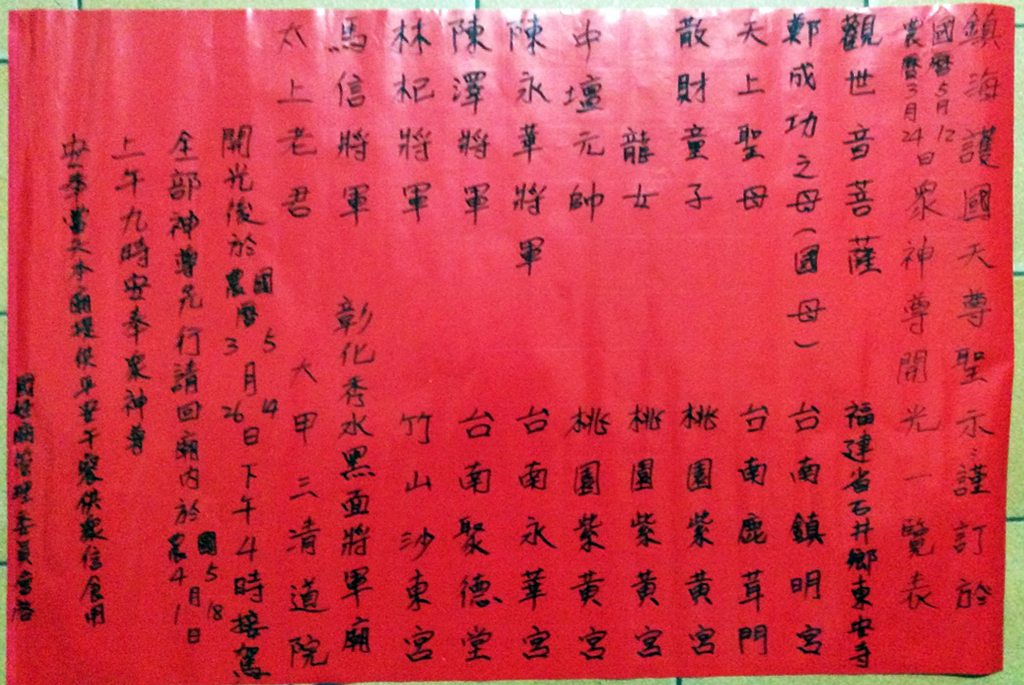 鎮海護國天尊聖示:謹訂於
國曆5月12
農曆3月24日眾神尊開光一覽表
觀世音菩薩 福建省石井鄉東安寺
鄭成功之母(國母) 台南鎮明宮
天上聖母 台南鹿耳門
散財童子 桃園紫黃宮
龍女 桃園紫黃宮
中壇元帥 桃園紫黃宮
陳永華將軍 台南永華宮
陳澤將軍 台南聚德堂
林杞將軍 竹山沙東宮
馬信將軍 彰化秀水黑面將軍廟
太上老君 大甲三清道院
開光後於國 5 14
農曆3月26日下午4時接駕
全部神尊先行請回廟內於國5 18
農4月1日
上午九時安奉眾神尊
安奉當天本廟提供平安午宴供眾信食用
國姓廟管理委員會啓